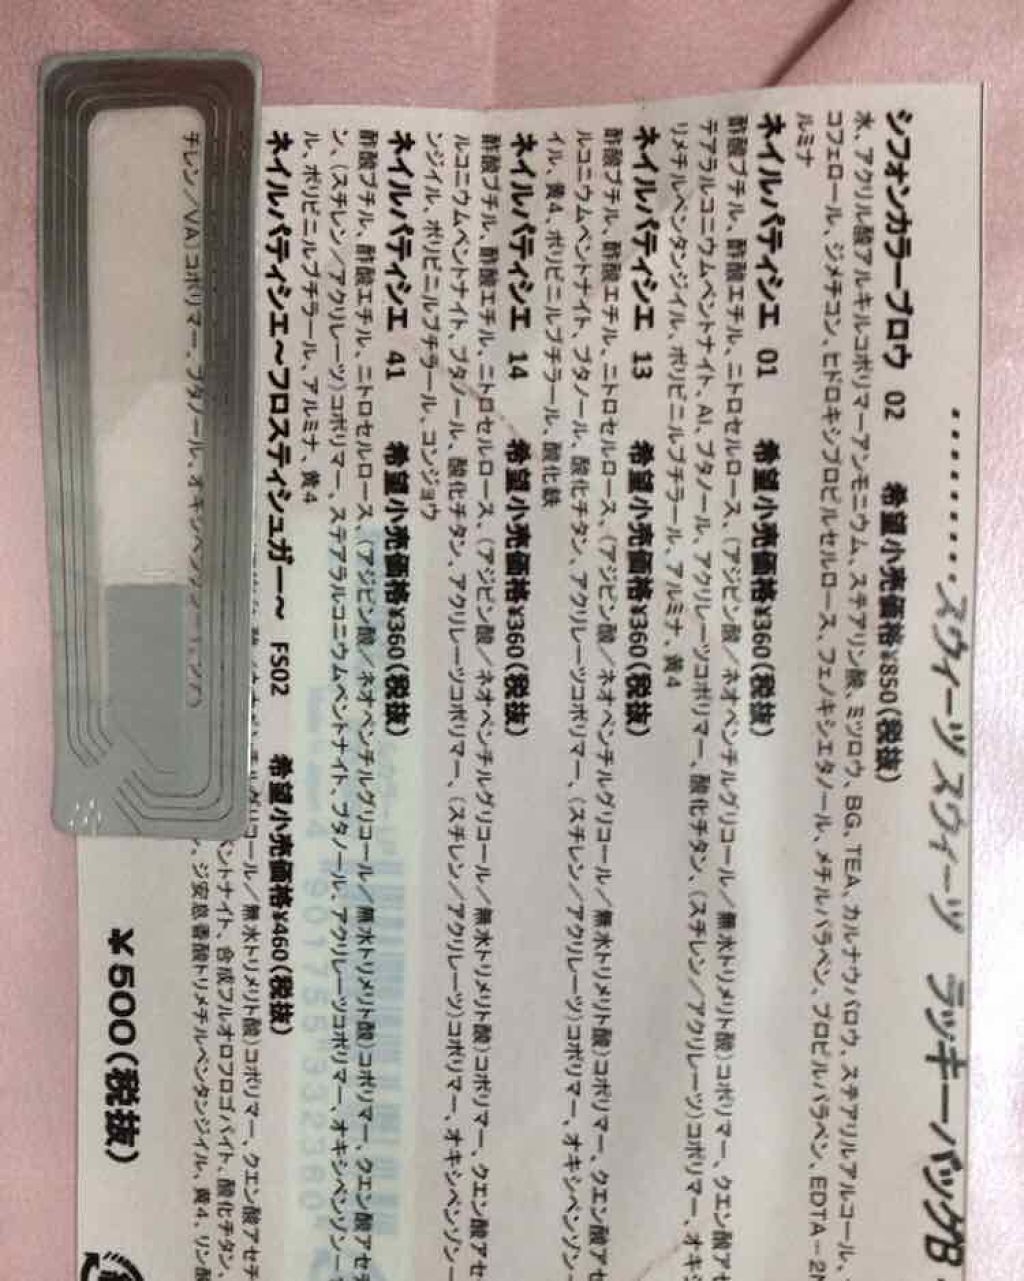 スウィーツスウィーツ ラッキーバッグB
シフォンカラーブロウ 02 希望小売価格¥850(税抜)
水、アクリル酸アルキルコポリマーアンモニウム、ステアリン酸、ミツロウ、BG、TEA、カルナウバロウ、ステアリルアルコール、
コフェロール、ジメチコン、ヒドロキシプロピルセルロース、フェノキシエタノール、メチルパラベン、プロピルパラベン、EDTA-2
ルミナ
ネイルパティシエ 01 希望小売価格¥360(税抜)
酢酸ブチル、酢酸エチル、ニトロセルロース、(アジピン酸/ネオペンチルグリコール/無水トリメリト酸)コポリマー、クエン酸アセ
テアラルコニウムベントナイト、AI、ブタノール、アクリレーツコポリマー、酸化チタン、(スチレン/アクリレーツ)コポリマー、オキ
リメチルペンタンジイル、ポリビニルブチラール、アルミナ、黄4
ネイルパティシエ 13 希望小売価格¥360(税抜)
酢酸ブチル、酢酸エチル、ニトロセルロース、(アジピン酸/ネオペンチルグリコール/無水トリメリト酸)コポリマー、クエン酸アセ
ルコニウムベントナイト、ブタノール、酸化チタン、アクリレーツコポリマー、(スチレン/アクリレーツ)コポリマー、オキシベンゾン-
イル、黄4、ポリビニルブチラール、酸化鉄
ネイルパティシエ 14 希望小売価格¥360(税抜)
酢酸ブチル、酢酸エチル、ニトロセルロース、(アジピン酸/ネオペンチルグリコール/無水トリメリト酸)コポリマー、クエン酸アセ
ルコニウムベントナイト、ブタノール、酸化チタン、アクリレーツコポリマー、(スチレン/アクリレーツ)コポリマー、オキシベンゾン-
ンジイル、ポリビニルブチラール、コンジョウ
ネイルパティシエ 41 希望小売価格¥360(税抜)
酢酸ブチル、酢酸エチル、ニトロセルロース、(アジピン酸/ネオペンチルグリコール/無水トリメリト酸)コポリマー、クエン酸アセチ
ン、(スチレン/アクリレーツ)コポリマー、ステアラルコニウムベントナイト、ブタノール、アクリレーツコポリマー、オキシベンゾン-
ル、ポリビニルブチラール、アルミナ、黄4
ネイルパティシエ〜フロスティシュガー〜 FS02 希望小売価格¥460(税抜)
グリコール/無水トリメリト酸)コポリマー、クエン酸アセチ
ベントナイト、合成フルオロフロゴパイト、酸化チタン、
チレン/VA)コポリマー、ブタノール、オキシベンゾン-1、ジ安息香酸トリメチルペンタンジイル、黄4、リン酸
¥500(税抜)